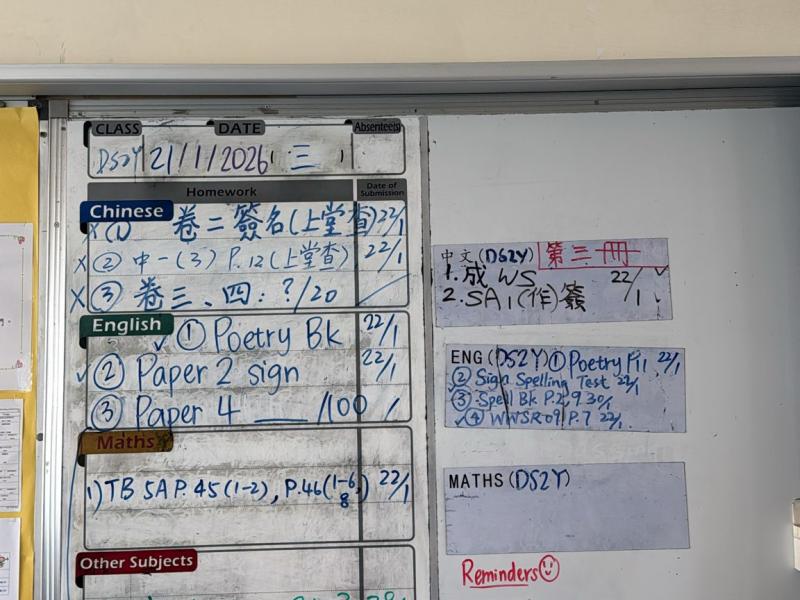 CLASS DATE Absentee(s)
DS2Y 21/1/2026 ( 三 )
Homework Date of Submission
Chinese
X ① 卷二簽名(上堂查) 22/1
X ② 中一(3) P.12(上堂查) 22/1
X ③ 卷三、四：?/20
English
✓ ① Poetry Bk 22/1
✓ ② Paper 2 sign 22/1
③ Paper 4 ___ /100 /
Maths
1) TB 5A P.45 (1-2), P.46 (1-6, 8) 22/1
Other Subjects
中文(DS2Y) 第三冊
1. 成 WS 22/1 ✓
2. SA1(作)簽
ENG (DS2Y) ① Poetry P.11 22/1
② Sign Spelling Test 22/1
③ Spell Bk P.2,9 30/1
✓ ④ WWSR 09 P.7 22/1
MATHS (DS2Y)
Reminders